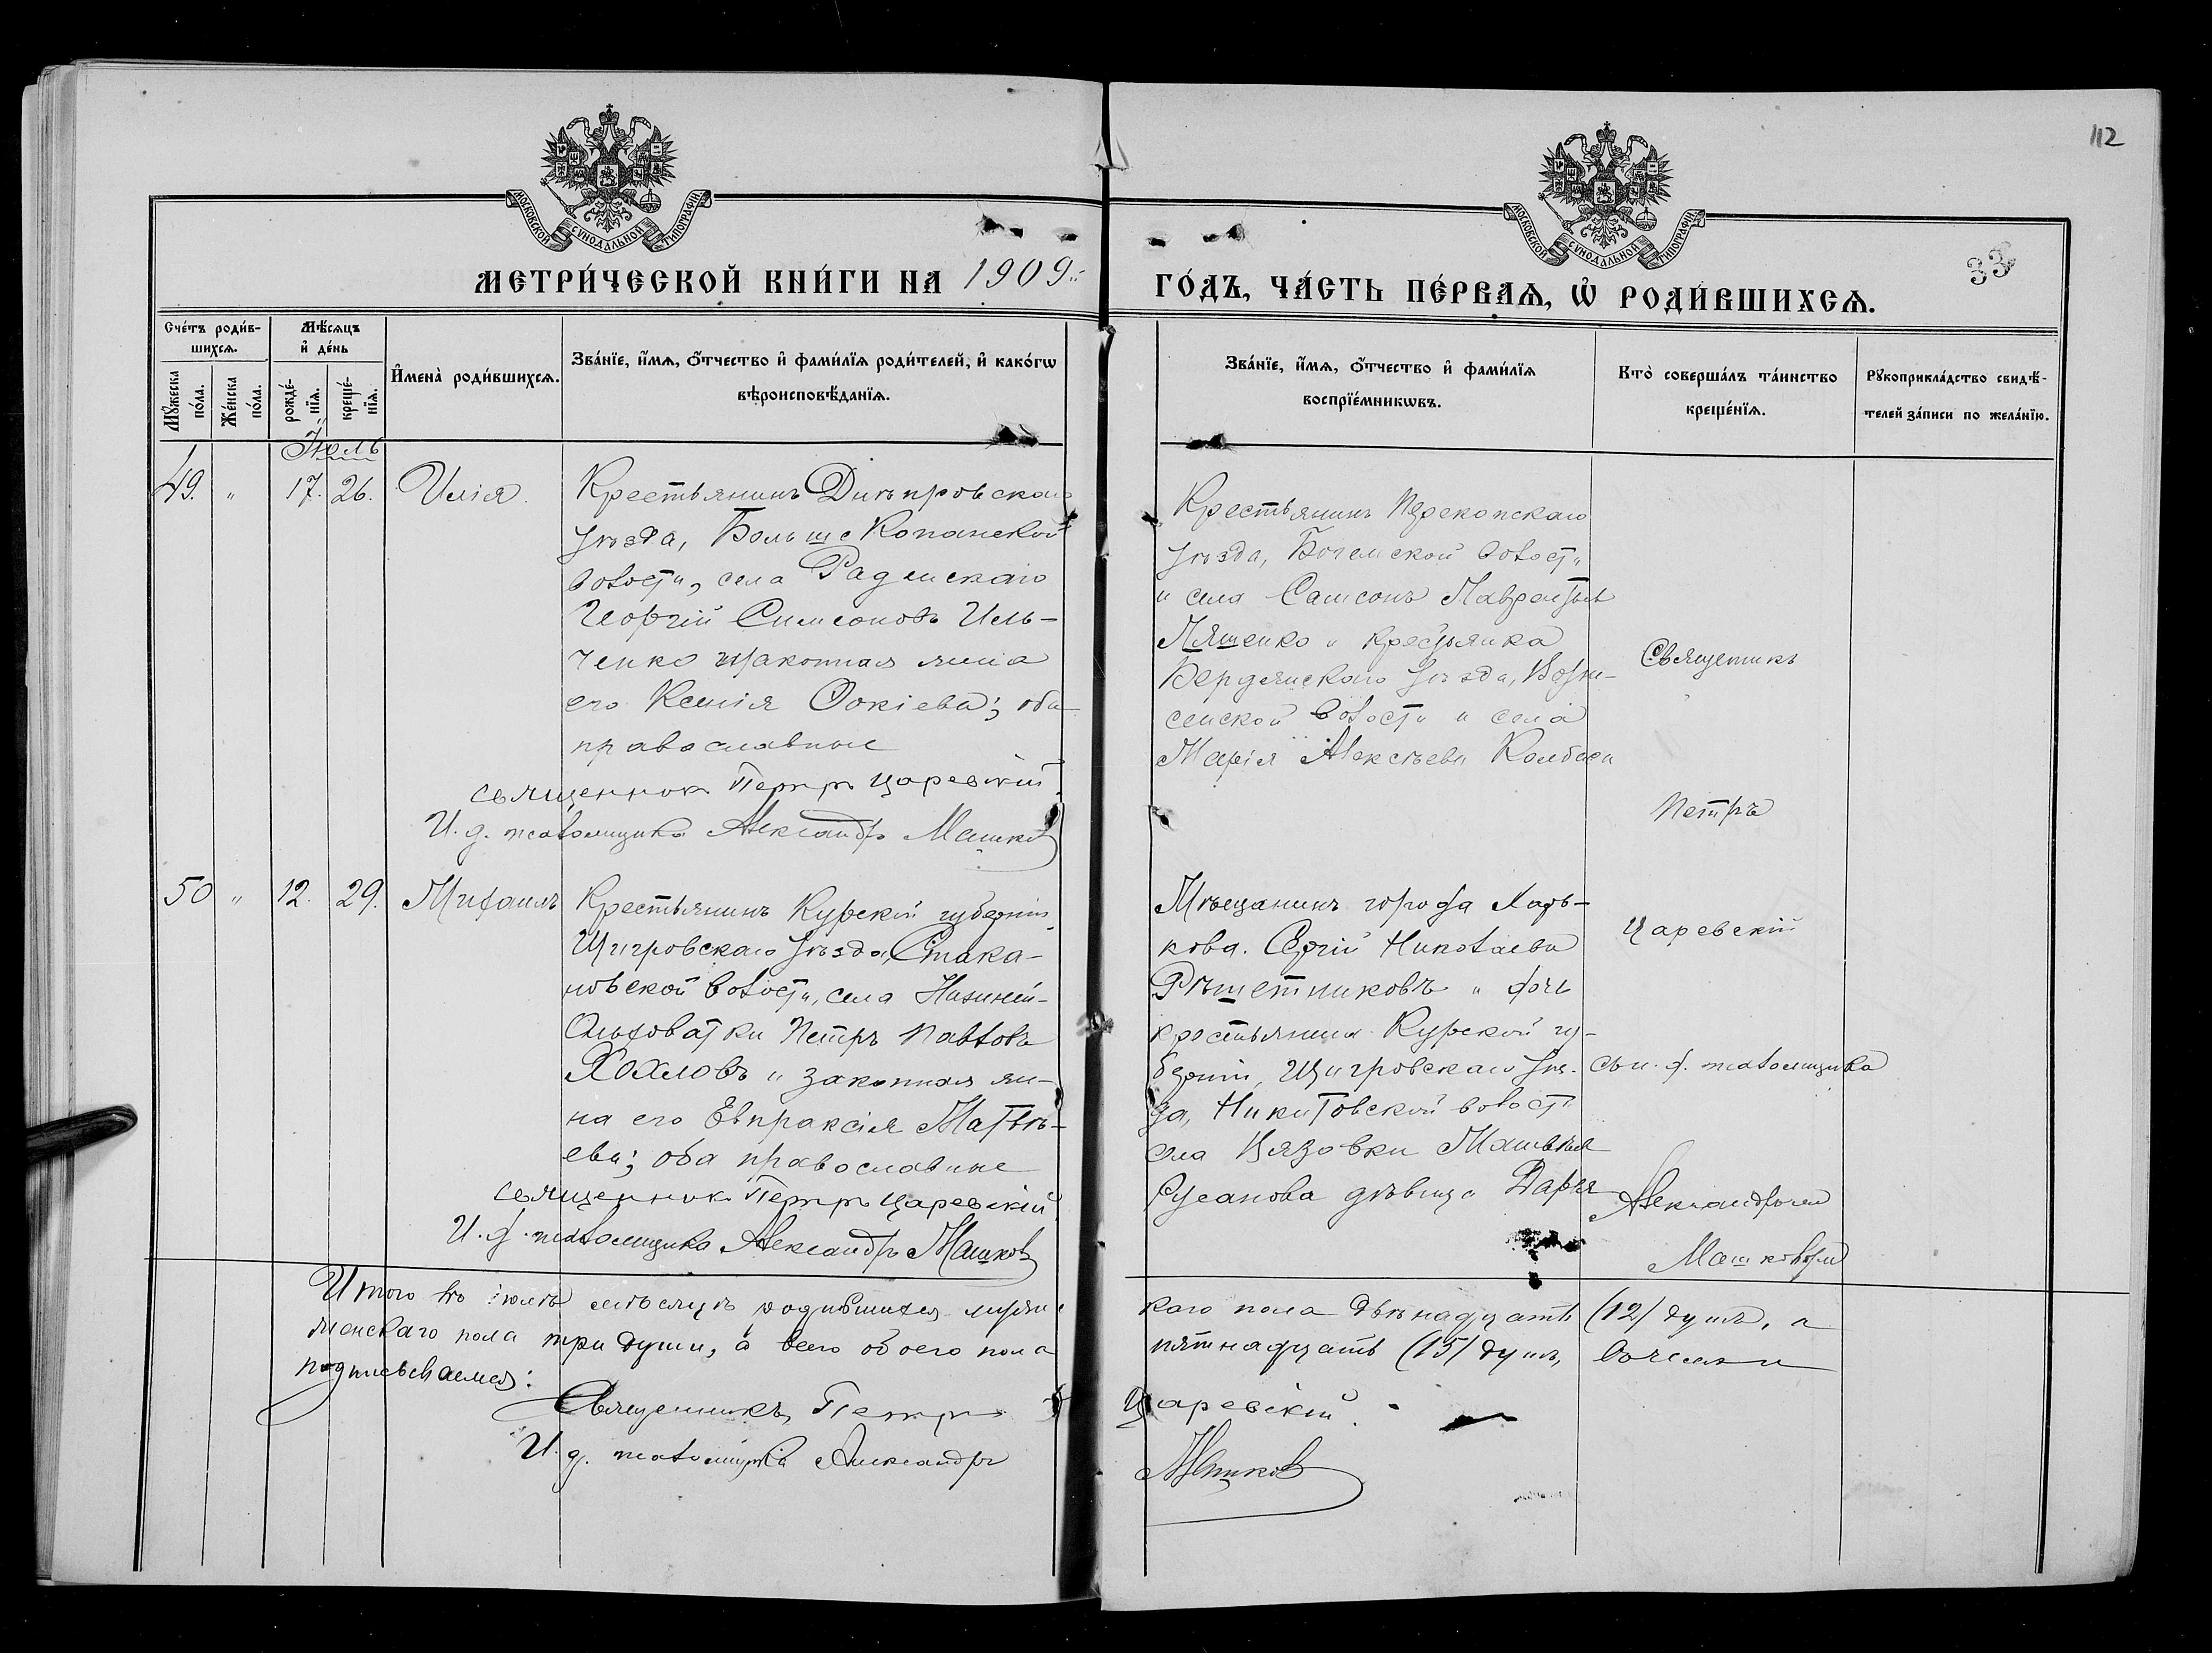 112
МОСКОВСКОЙ СѴНОДАЛЬНОЙ ТИПОГРАФІИ
МОСКОВСКОЙ СѴНОДАЛЬНОЙ ТИПОГРАФІИ
33
МЕТРИ́ЧЕСКОЙ КНИ́ГИ НА 1909 ГО́ДЪ, ЧА́СТЬ ПЕ́РВАѦ, Ѡ҆ РОДИ́ВШИХСѦ.
Сче́тъ роди́в-
шихсѧ.
Мꙋ́жеска по́ла.
Же́нска по́ла.
Мѣ́сѧцъ
и҆ де́нь
рожде́-
нїѧ.
креще́-
нїѧ.
И҆мена̀ роди́вшихсѧ.
Зва́нїе, и҆́мѧ, ѻ҆́тчество и҆ фами́лїѧ роди́телей, и҆ како́гѡ
вѣроисповѣ́данїѧ.
Зва́нїе, и҆́мѧ, ѻ҆́тчество и҆ фами́лїѧ
воспрїе́мникѡвъ.
Кто̀ соверша́лъ та́инство
креще́нїѧ.
Рꙋкоприкла́дство свидѣ́-
телей за́писи по жела́нїю.
Іюль
49. " 17. 26. Илія.
Крестьянинъ Днѣпровскаго
уѣзда, Больше Копанской
волости, села Раденскаго
Георгій Симеоновъ Иль-
ченко и законная жена
его Ксенія Фокіева; оба
православные
священникъ Петръ Царевскій.
И. д. псаломщика Александръ Машковъ
Крестьянинъ Перекопскаго
уѣзда, Богемской волости
и села Самсонъ Лаврентьевъ
Ляшенко и крестьянка
Бердянскаго уѣзда, Возне-
сенской волости и села
Марія Алексѣева Колбаса
Священникъ
Петръ
Царевскій
съ и. д. псаломщика
Александромъ
Машковымъ
50 " 12. 29. Михаилъ
Крестьянинъ Курской губерніи,
Щигровскаго уѣзда, Стака-
новской волости, села Нижней-
Ольховатки Петръ Павловъ
Хохловъ и законная же-
на его Евпраксія Матвѣ-
ева; оба православные
священникъ Петръ Царевскій
И. д. псаломщика Александръ Машковъ
Мѣщанинъ города Харь-
кова. Сергій Николаевъ
Рѣшетниковъ и дочь
крестьянина Курской гу-
берніи, Щигровскаго уѣз-
да, Никитовской волости
села Вязовки
Русанова дѣвица Дарья
Итого въ іюлѣ мѣсяцѣ родившихся мужес
каго пола двѣнадцать (12) душъ, а
женскаго пола три души, а всего обоего пола
пятнадцать (15) душъ, въ чемъ и
подписываемся:
Священникъ Петръ Царевскій.
И. д. псаломщика Александръ Машковъ